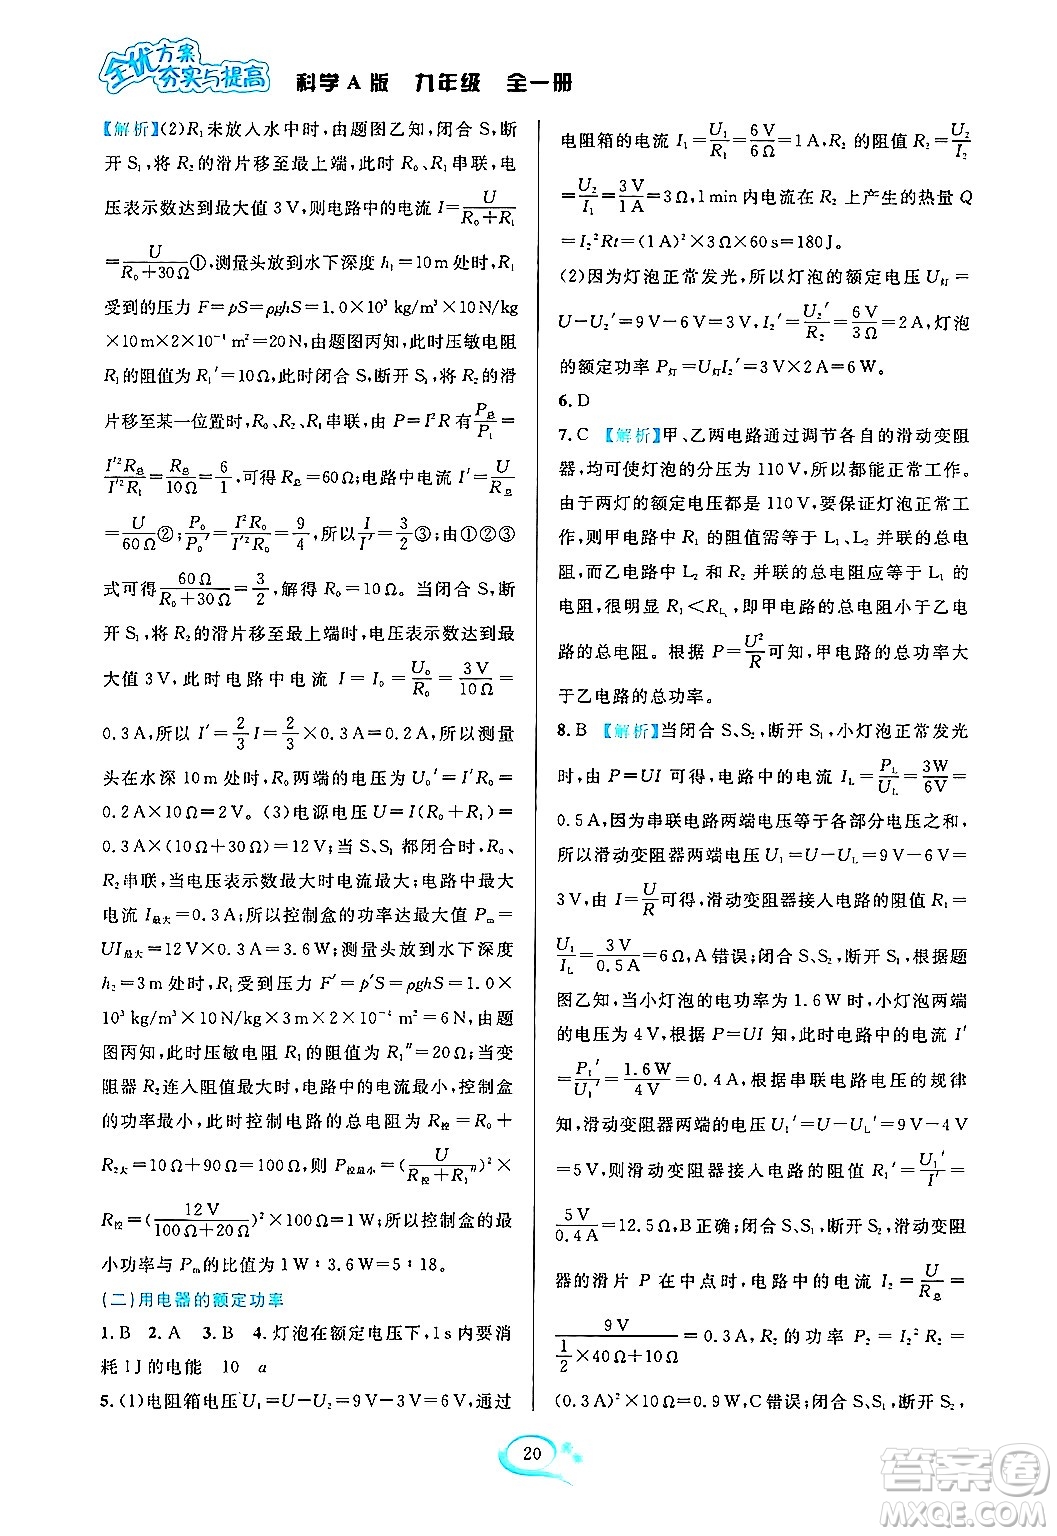 全优方案
夯实与提高
科学 A 版 九年级 全一册
【解析】(2)R₁未放入水中时,由题图乙知,闭合 S,断
开 S₁,将 R₂的滑片移至最上端,此时 R₀、R₁串联,电
压表示数达到最大值 3 V,则电路中的电流 I=U/(R₀+R₁)
=U/(R₀+30Ω)①,测量头放到水下深度 h₁=10m 处时,R₁
受到的压力 F=pS=ρghS=1.0×10³kg/m³×10N/kg
×10m×2×10⁻⁴ m²=20N,由题图丙知,此时压敏电阻
R₁的阻值为 R₁′=10Ω,此时闭合 S、断开 S₁,将 R₂的滑
片移至某一位置时,R₀、R₂、R₁串联,由 P=I²R 有P总/P₁=
I′²R总/I′²R₁=R总/10Ω=6/1,可得 R总=60Ω;此时电路中电流 I′=U/R总
=U/60Ω②;P₀/P₀′=I²R₀/I′²R₀=9/4,所以I/I′=3/2③;由①②③
式可得60Ω/(R₀+30Ω)=3/2,解得 R₀=10Ω。当闭合 S、断
开 S₁,将 R₂的滑片移至最上端时,电压表示数达到最
大值 3 V,此时电路中电流 I=I₀=U₀/R₀=3 V/10Ω=
0.3A,所以 I′=2/3I=2/3×0.3A=0.2A,所以测量
头在水深 10m 处时,R₀两端的电压为 U₀′=I′R₀=
0.2A×10Ω=2V。(3)电源电压 U=I(R₀+R₁)=
0.3A×(10Ω+30Ω)=12 V;当 S、S₁都闭合时,R₀、
R₂串联,当电压表示数最大时电流最大;电路中最大
电流 I最大=0.3A;所以控制盒的功率达最大值 Pm=
UI最大=12 V×0.3A=3.6W;测量头放到水下深度
h₂=3m 处时,R₁受到压力 F′=p′S=ρghS=1.0×
10³ kg/m³×10N/kg×3m×2×10⁻⁴ m²=6N,由题
图丙知,此时压敏电阻 R₁的阻值为 R₁″=20Ω;当变
阻器 R₂连入阻值最大时,电路中的电流最小,控制盒
的功率最小,此时控制电路的总电阻为 R控=R₀+
R₂大=10Ω+90Ω=100Ω,则 P控最小=(U/(R控+R₁″))²×
R控=(12 V/(100Ω+20Ω))²×100Ω=1W;所以控制盒的最
小功率与 Pm的比值为 1W∶3.6W=5∶18。
(二)用电器的额定功率
1.B 2.A 3.B 4.灯泡在额定电压下,1s 内要消
耗 1J 的电能 10 a
5.(1)电阻箱电压U₁=U−U₂=9V−3V=6V,通过
电阻箱的电流 I₁=U₁/R₁=6 V/6Ω=1A,R₂ 的阻值 R₂=U₂/I₂
=U₂/I₁=3 V/1A=3Ω,1min 内电流在 R₂ 上产生的热量 Q
=I₂²Rt=(1A)²×3Ω×60s=180J。
(2)因为灯泡正常发光,所以灯泡的额定电压U灯=
U−U₂′=9V−6V=3V,I₂′=U₂′/R₂=6 V/3Ω=2A,灯泡
的额定功率 P灯=U灯I₂′=3V×2A=6W。
6.D
7.C 【解析】甲、乙两电路通过调节各自的滑动变阻
器,均可使灯泡的分压为 110V,所以都能正常工作。
由于两灯的额定电压都是 110V,要保证灯泡正常工
作,则甲电路中 R₁ 的阻值需等于 L₁、L₂ 并联的总电
阻,而乙电路中 L₂ 和 R₂ 并联的总电阻应等于 L₁ 的
电阻,很明显 R₁<R_L,即甲电路的总电阻小于乙电
路的总电阻。根据 P=U²/R可知,甲电路的总功率大
于乙电路的总功率。
8.B 【解析】当闭合 S、S₂,断开 S₁,小灯泡正常发光
时,由 P=UI 可得,电路中的电流 I_L=P_L/U_L=3W/6V=
0.5A,因为串联电路两端电压等于各部分电压之和,
所以滑动变阻器两端电压 U₁=U−U_L=9V−6V=
3V,根据 I=U/R可得,滑动变阻器接入电路的阻值 R₁=
U₁/I_L=3 V/0.5A=6Ω,A 错误;闭合 S、S₂,断开 S₁,根据题
图乙知,当小灯泡的电功率为 1.6W 时,小灯泡两端
的电压为 4V,根据 P=UI 知,此时电路中的电流 I′
=P₁′/U₁′=1.6W/4V=0.4A,根据串联电路电压的规律
知,滑动变阻器两端的电压 U₁′=U−U_L′=9V−4V
=5V,则滑动变阻器接入电路的阻值 R₁′=U₁′/I′=
5 V/0.4A=12.5Ω,B 正确;闭合 S、S₁,断开 S₂,滑动变阻
器的滑片 P 在中点时,电路中的电流 I₂=U/R总=
9 V/(1/2×40Ω+10Ω)=0.3A,R₂ 的功率 P₂=I₂² R₂=
(0.3A)²×10Ω=0.9W,C 错误;闭合 S、S₁,断开 S₂,
20
答案圈
MXQE.COM